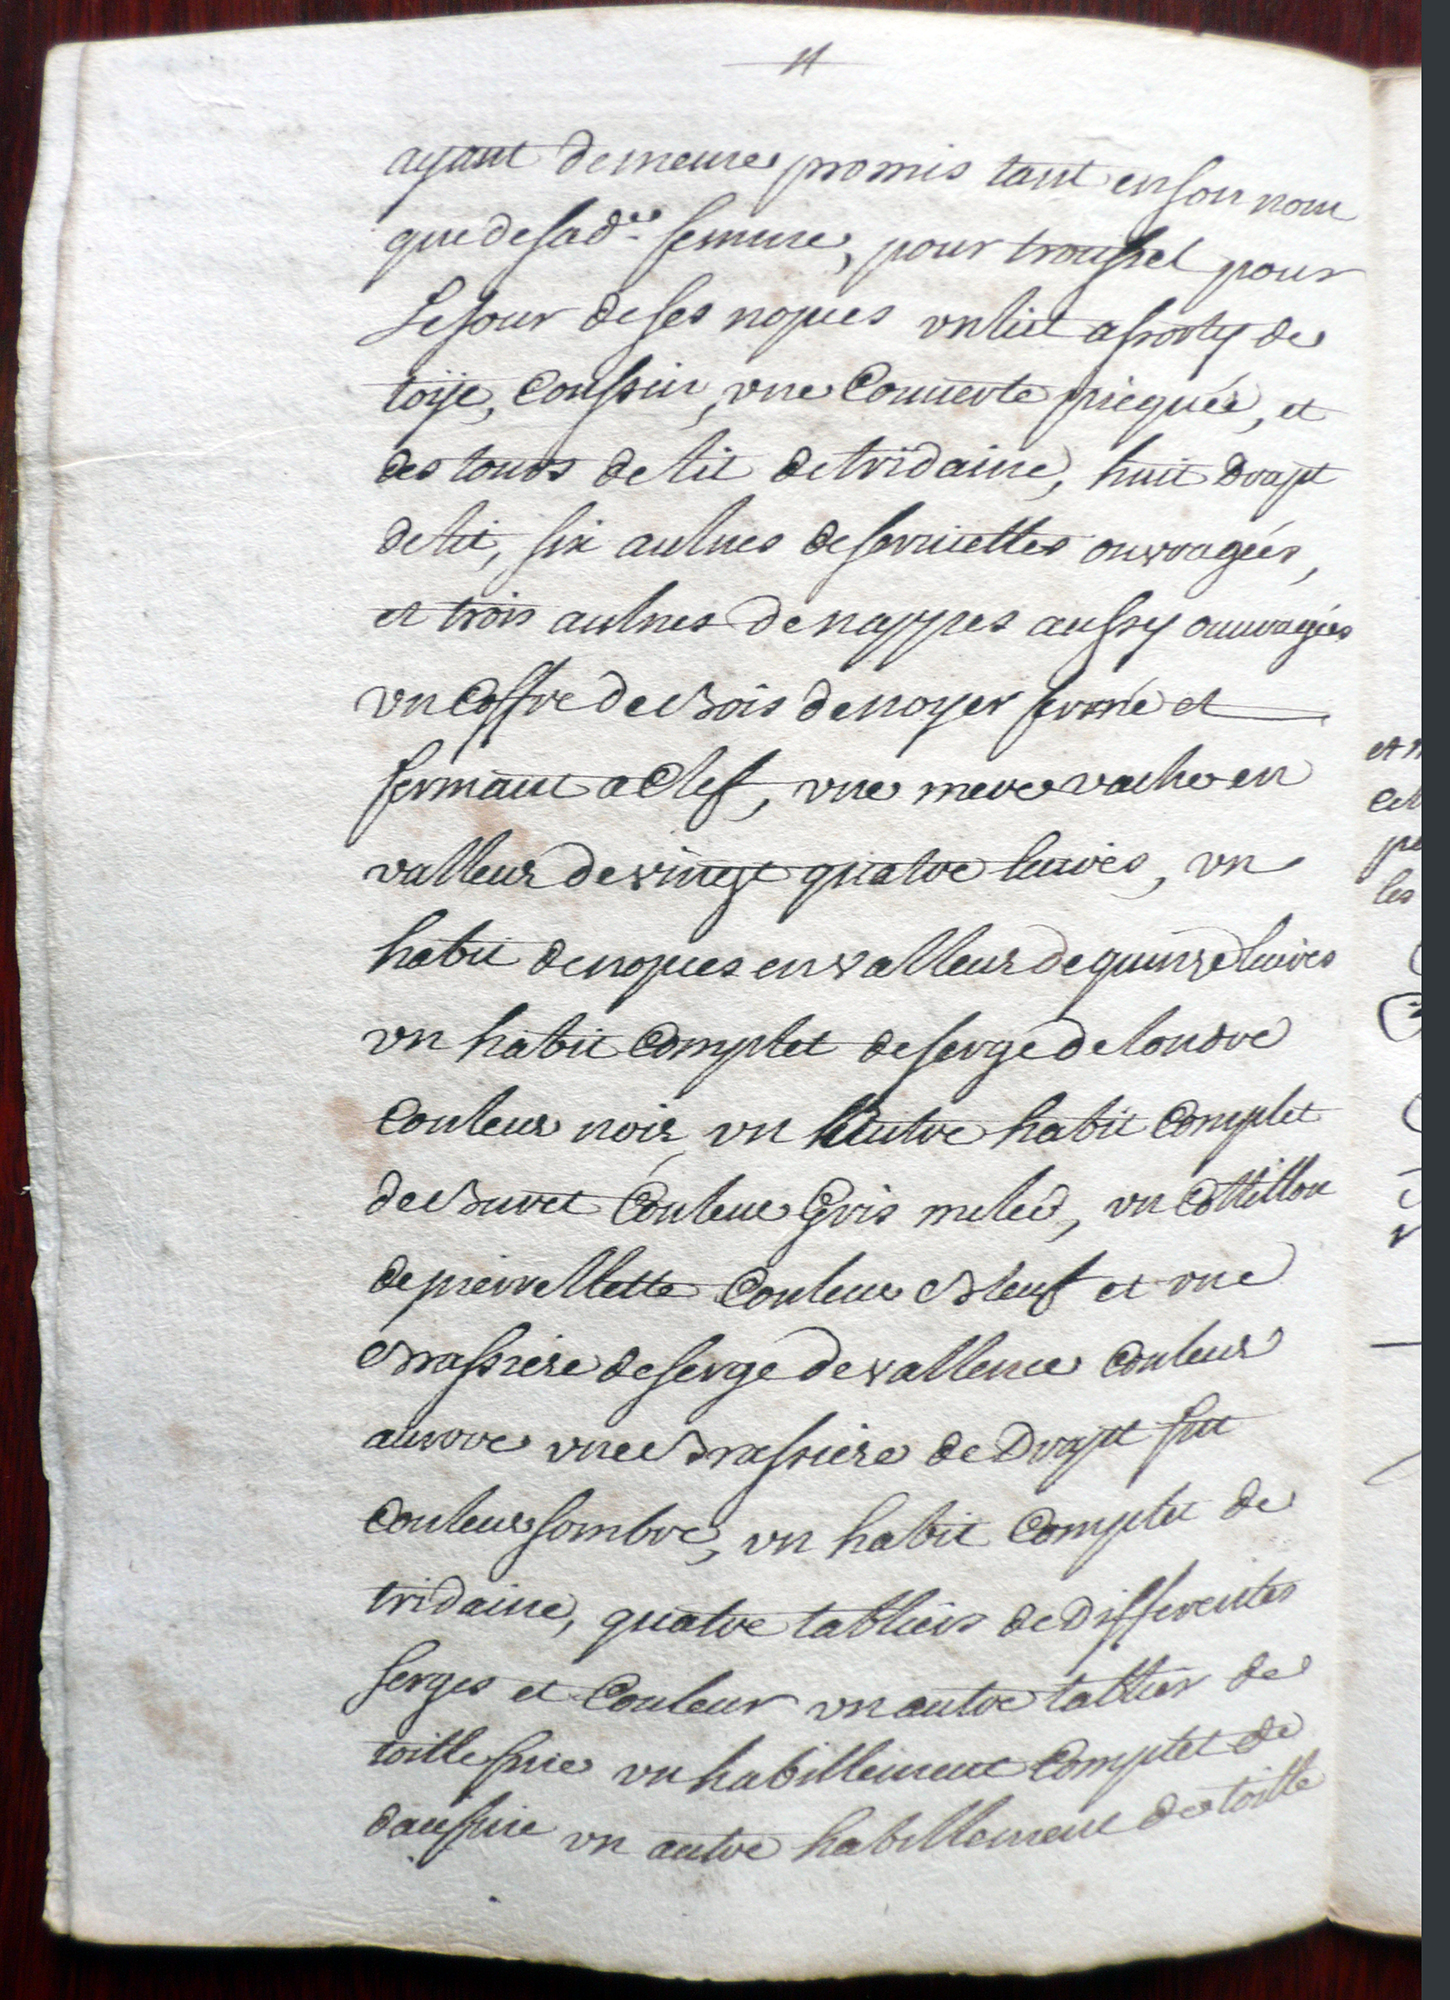 ayant de meure promis tant en son nom
que de sad.e femme, pour troussel pour
le jour de ses nopces un lict assorty de
toije, Coussin, une Couuerte picquée, et
des tours de lit de tridaine, huit Drapt
de lit, six aulnes de seruiettes ouvragées,
et trois aulnes de nappes aussy ouuragées
un Coffre de Bois de noyer ferré et
fermant a Clef, une mere vache en
valleur de vingt quatre liures, un
habit de nopces en valleur de quinze liures
un habit Complet de serge de londre
Couleur noir, un autre habit Complet
de Buret Couleur Gris meleé, un Cottillon
de pierrellette Couleur Bleuf et une
Brassiere de serge de vallence Couleur
aurore une Brassiere de Drapt fin
Couleur sombre, un habit Complet de
tridaine, quatre tabliers de Differentes
serges et Couleur un autre tablier de
toille fine un habillement Complet de
daufine un autre habillement de toille
et
les